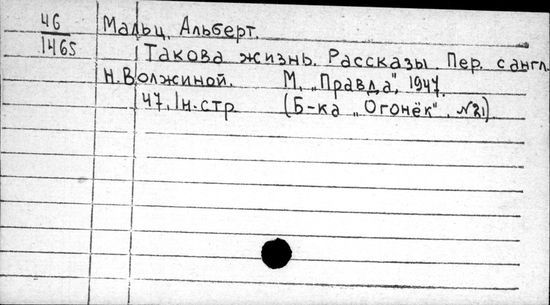 46
1465
Мальц, Альберт.
Такова жизнь. Рассказы. Пер. с англ.
Н. Волжиной. М., „Правда", 1947.
47, 1н. стр (Б-ка „Огонёк". №21)